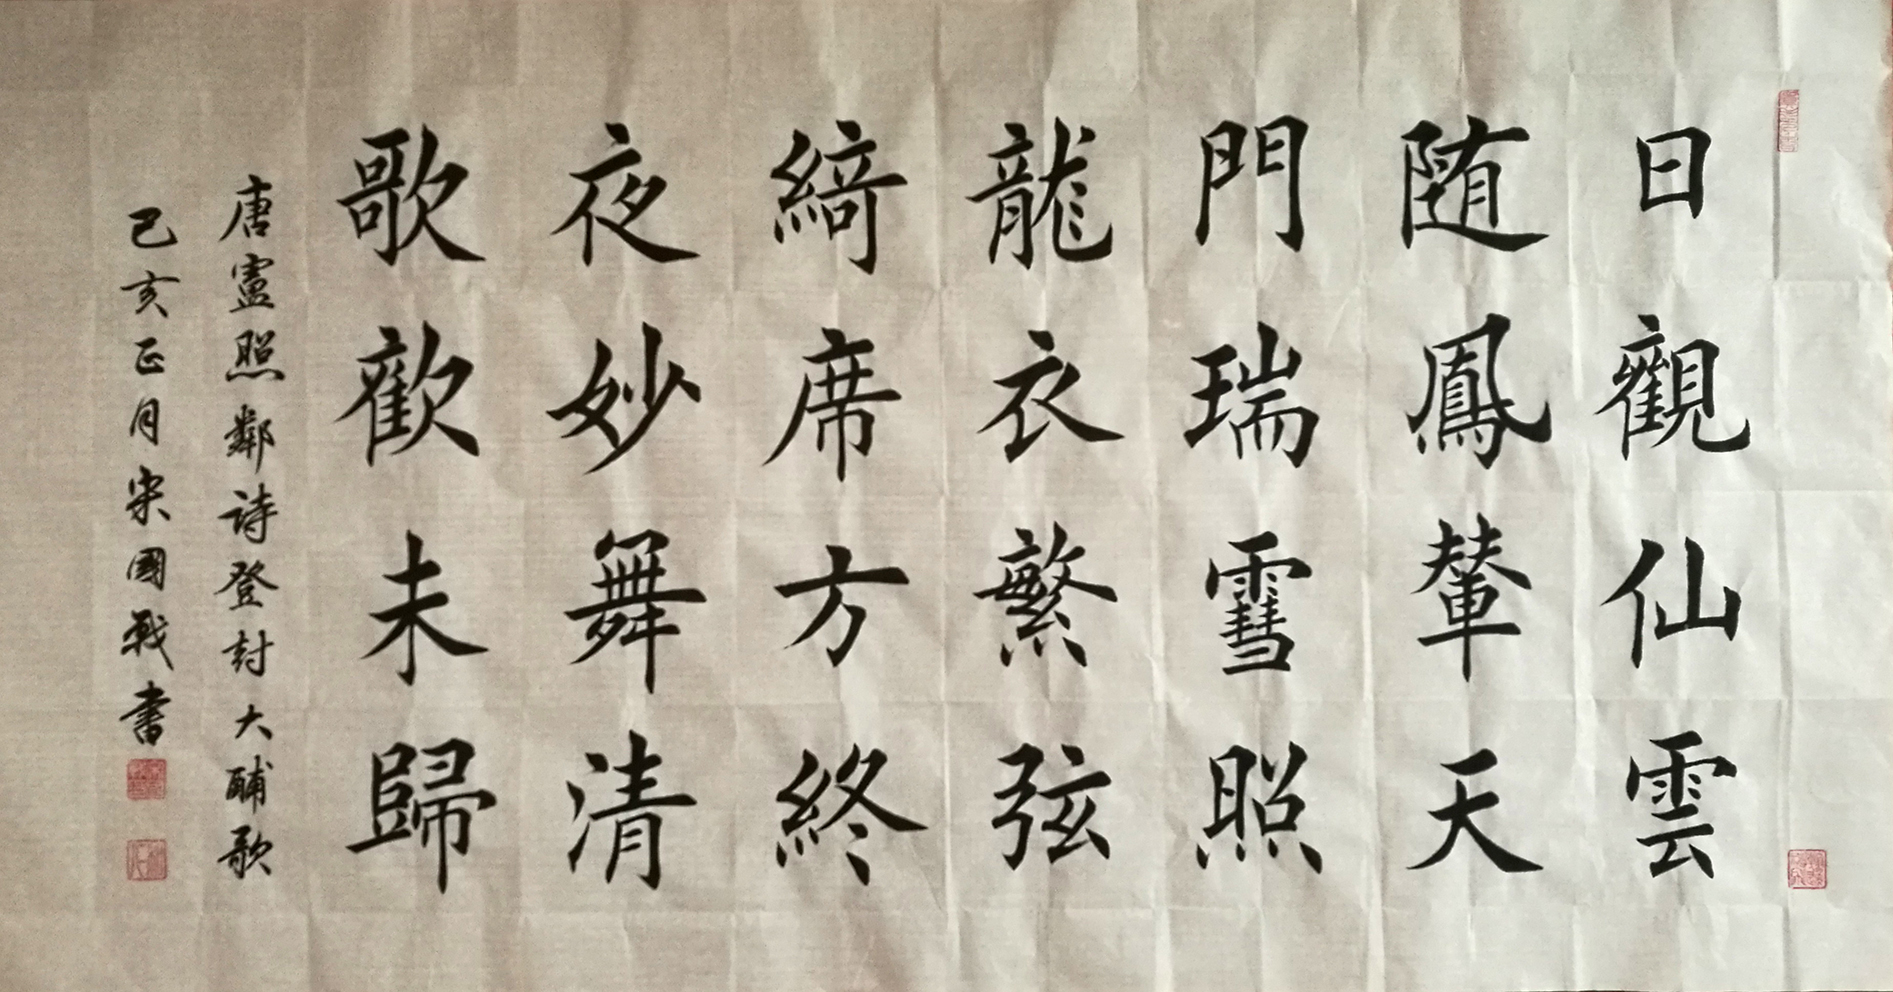 日觀仙雲
随鳳輦天
門瑞雪照
龍衣繁弦
綺席方終
夜妙舞清
歌歡未歸
唐盧照鄰詩登封大酺歌
己亥正月宋國戰書